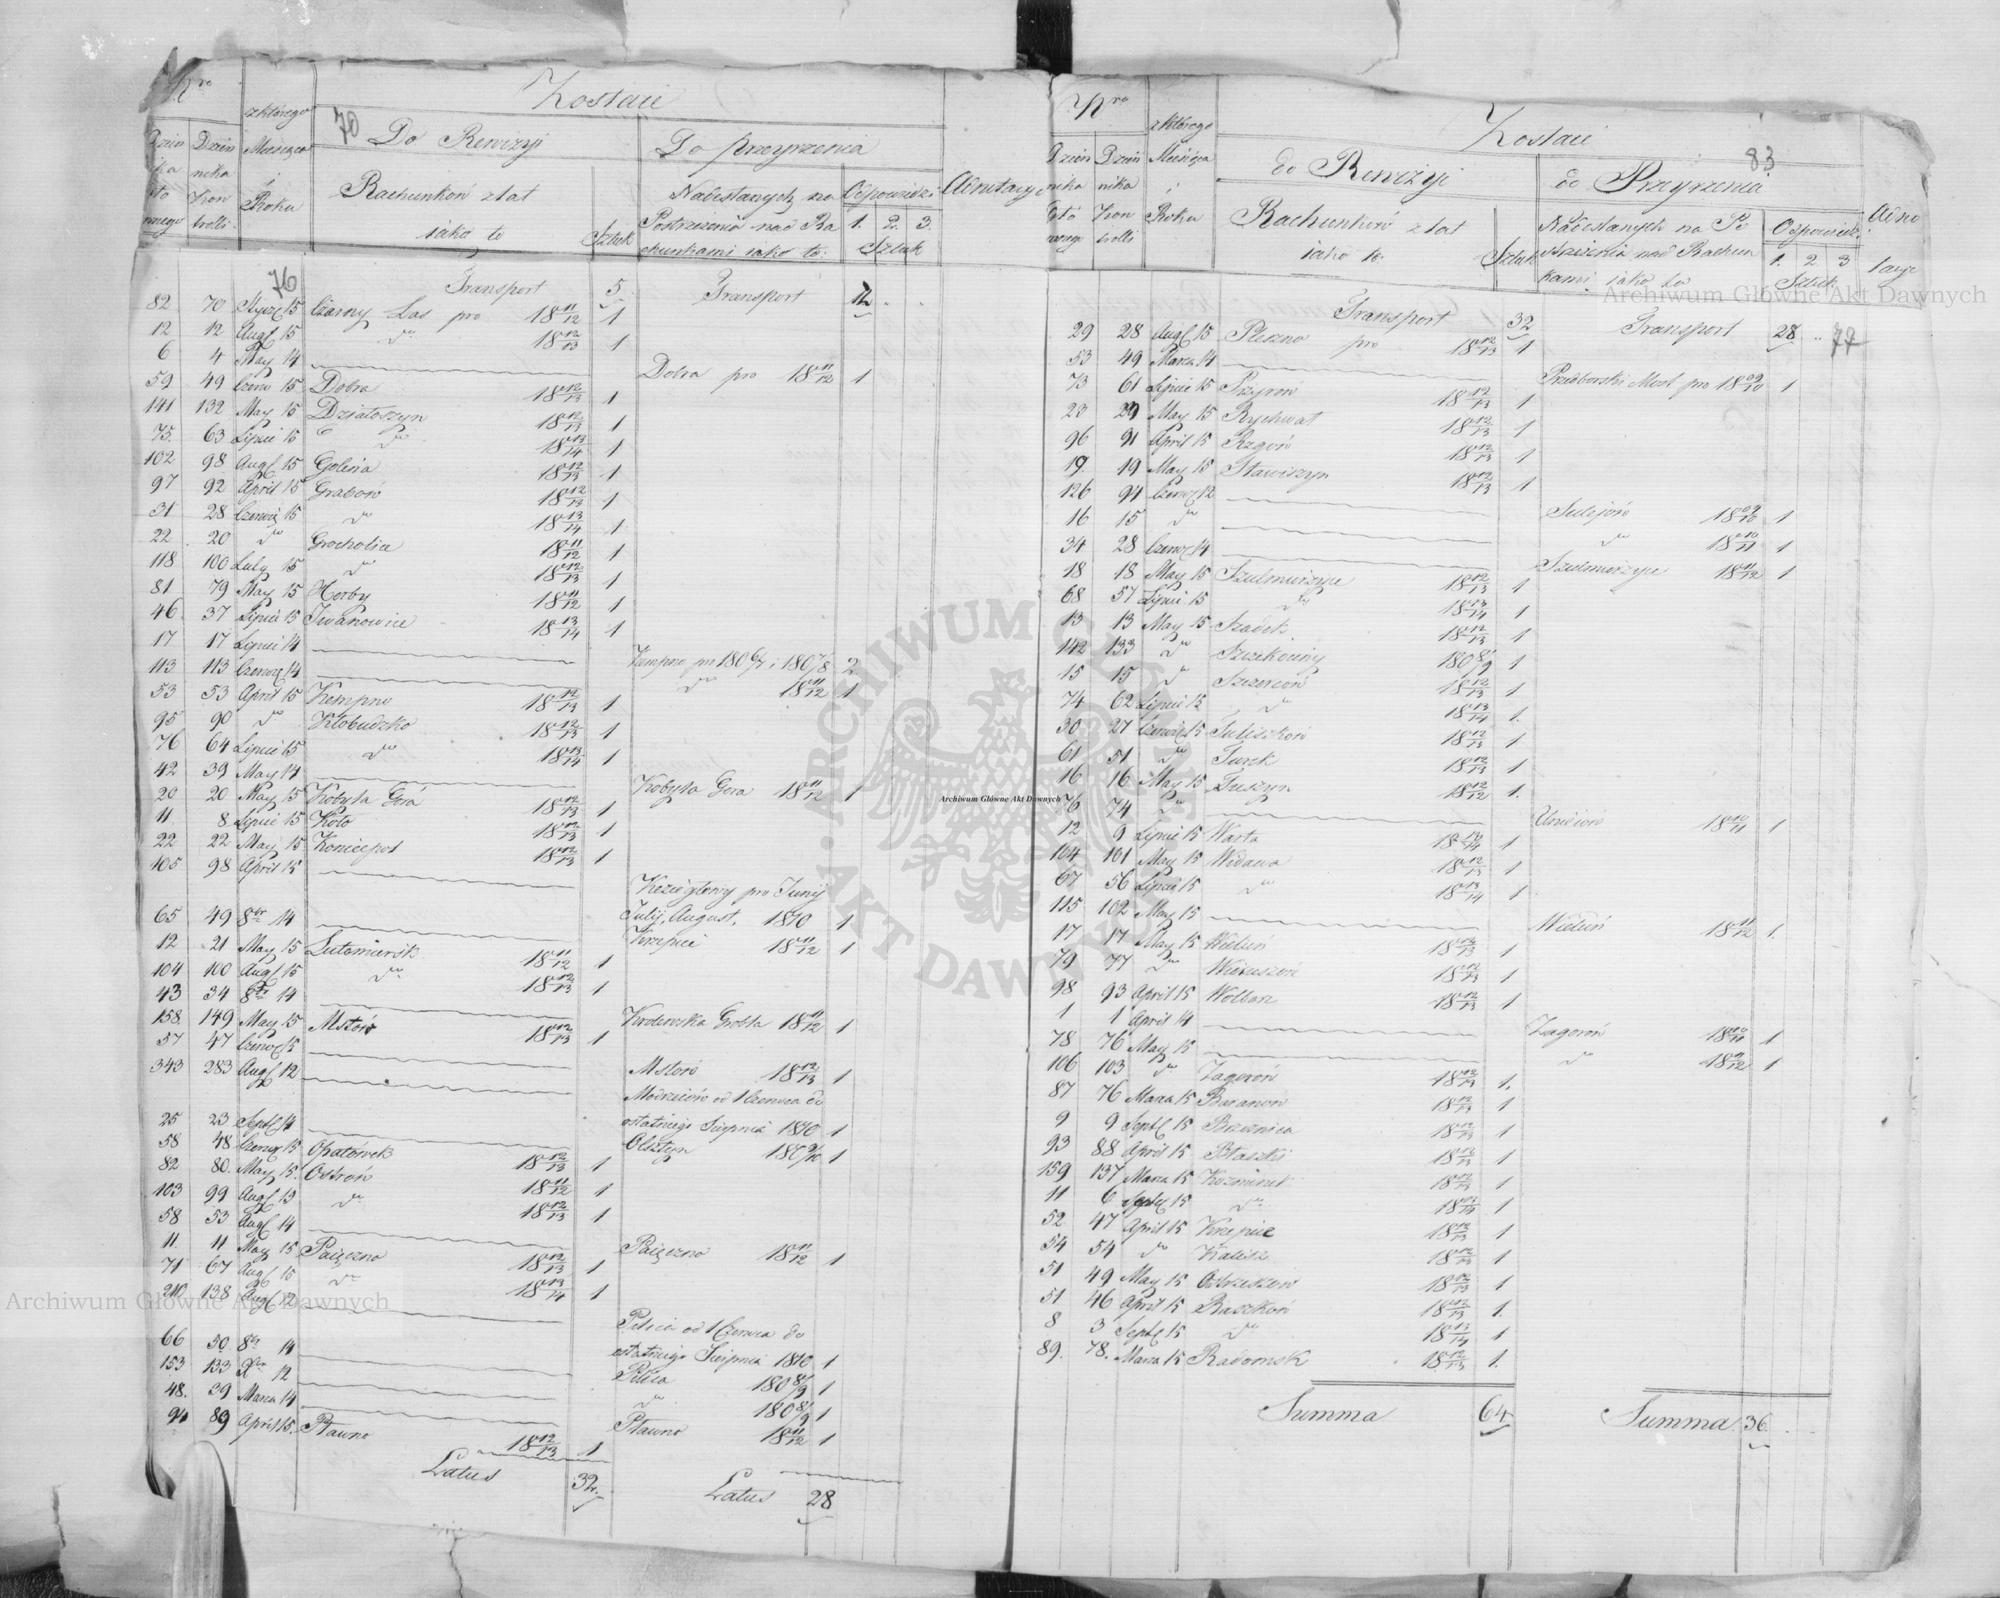 Nro
z którego
Miesiąca
i
Roku
70
Zostaie
Do Rewizyi
Do przeyrzenia
Rachunków z lat
iako to
Sztuk
Nadesłanych na
Postrzeżenia nad Ra
chunkami iako to:
Odpowiedzi
1. 2. 3.
Sztuk
76
Transport 5 Transport 12
82 70 Stycz 15 Czarny Las pro 18 11/12 1
12 12 Augt 15 do 18 12/13 1
6 4 May 14 Dobra pro 18 11/12 1
59 49 Czerw 15 Dobra 18 12/13 1
141 132 May 15 Działoszyn 18 12/13 1
75 63 Lipiec 15 do 18 13/14 1
102 98 Augt 15 Golina 18 12/13 1
97 92 April 15 Grabow 18 12/13 1
31 28 Czerwiec 15 do 18 13/14 1
22 20 do Grocholice 18 11/12 1
118 100 Luty 15 do 18 12/13 1
81 79 May 15 Herby 18 11/12 1
46 37 Lipiec 15 Iwanowice 18 13/14 1
17 17 Lipiec 14 Kempno pro 180 6/7 i 180 7/8 2
113 113 Czerwc 14 do 18 11/12 1
53 53 April 15 Kempno 18 12/13 1
95 90 do Kłobudzko 18 12/13 1
76 64 Lipiec 15 do 18 13/14 1
42 39 May 14 Kobyla Gora 18 11/12 1
20 20 May 15 Kobyla Góra 18 12/13 1
11 8 Lipiec 15 Koło 18 12/13 1
22 22 May 15 Koniecpol 18 12/13 1
105 98 April 15 Kozieglowy pro Junij
July, August. 1810 1
65 49 8br 14 Krzepice 18 11/12 1
12 21 May 15 Lutomiersk 18 11/12 1
104 100 Augt 15 do 18 12/13 1
43 34 8br 14 Krolewska Grobla 18 11/12 1
158 149 May 15 Mstów 18 12/13 1
57 47 Czerwc 15 Mstow 18 12/13 1
343 283 Augt 12 Modrzeiow od 1 Czerwca do
ostatniego Sierpnia 1810 1
25 23 Septbr 14 Olsztyn 180 9/10 1
58 48 Czerwc 15 Opatówek 18 12/13 1
82 80 May 15 Ostrow 18 11/12 1
103 99 Augt 15 do 18 12/13 1
58 53 Augt 14 Paięczno 18 11/12 1
11 11 May 15 Paięczno 18 12/13 1
71 67 Augt 15 do 18 13/14 1
210 138 Augt 12 Pilica od 1 Czerwca do
ostatniego Sierpnia 1810 1
66 50 8br 14 Pilica 180 8/9 1
153 133 Xbr 12 do 180 8/9 1
48 39 Marca 14 Pławno 18 11/12 1
94 89 April 15 Pławno 18 12/13 1
Latus 32 Latus 28
Nro
z którego
Miesiąca
i
Roku
Zostaie
83
do Rewizyi
do Przeyrzenia
Rachunków z lat
iako to
Sztuk
Nadesłanych na Po
strzeżenia nad Rachun
kami iako to
Odpowiedzi
1. 2 3
Sztuk
Transport 32 Transport 28 77
29 28 Augt 15 Pleszno pro 18 12/13 1
53 49 Marca 14 Przedborski Most pro 18 09/10 1
73 61 Lipiec 15 Przyrow 18 12/13 1
23 29 May 15 Rychwał 18 12/13 1
96 91 April 15 Rzgow 18 12/13 1
19 19 May 15 Stawiszyn 18 12/13 1
126 94 Czerwc 12 Sulejów 18 09/10 1
16 15 do do 18 10/11 1
34 28 Czerwc 14 Szulmierzyce 18 11/12 1
18 18 May 15 Szulmierzyce 18 12/13 1
68 57 Lipiec 15 do 18 13/14 1
13 13 May 15 Szadek 18 12/13 1
142 133 do Szczekociny 180 8/9 1
15 15 do Szczerców 18 12/13 1
74 62 Lipiec 15 do 18 13/14 1
30 27 Czerwiec 15 Tuliszkow 18 12/13 1
61 51 do Turek 18 12/13 1
16 16 May 15 Tuszyn 18 12/12 1
76 74 do Unieiow 18 10/11 1
12 9 Lipiec 15 Warta 18 13/14 1
104 101 May 15 Widawa 18 12/13 1
67 56 Lipiec 15 do 18 13/14 1
115 102 May 15 Wieluń 18 11/12 1
17 17 May 15 Wieluń 18 12/13 1
79 77 do Wieruszow 18 12/13 1
98 93 April 15 Wolborz 18 12/13 1
1 1 April 14 Zagorow 18 10/11 1
78 76 May 15 do 18 11/12 1
106 103 do Zagorow 18 12/13 1
87 76 Marca 15 Baranow 18 12/13 1
9 9 Septbr 15 Brzeznica 18 12/13 1
93 88 April 15 Błaszki 18 12/13 1
159 137 Marca 15 Kozminek 18 12/13 1
11 6 Septbr 15 do 18 13/14 1
52 47 April 15 Krzepice 18 12/13 1
54 54 do Kalisz 18 12/13 1
51 49 May 15 Ostrzeszow 18 12/13 1
51 46 April 15 Raszkow 18 12/13 1
8 3 Septbr 15 do 18 13/14 1
89 78 Marca 15 Radomsk 18 12/13 1
Summa 64 Summa 36
Archiwum Główne Akt Dawnych
Archiwum Główne Akt Dawnych
Archiwum Główne Akt Dawnych
ARCHIWUM GŁÓWNE AKT DAWNYCH